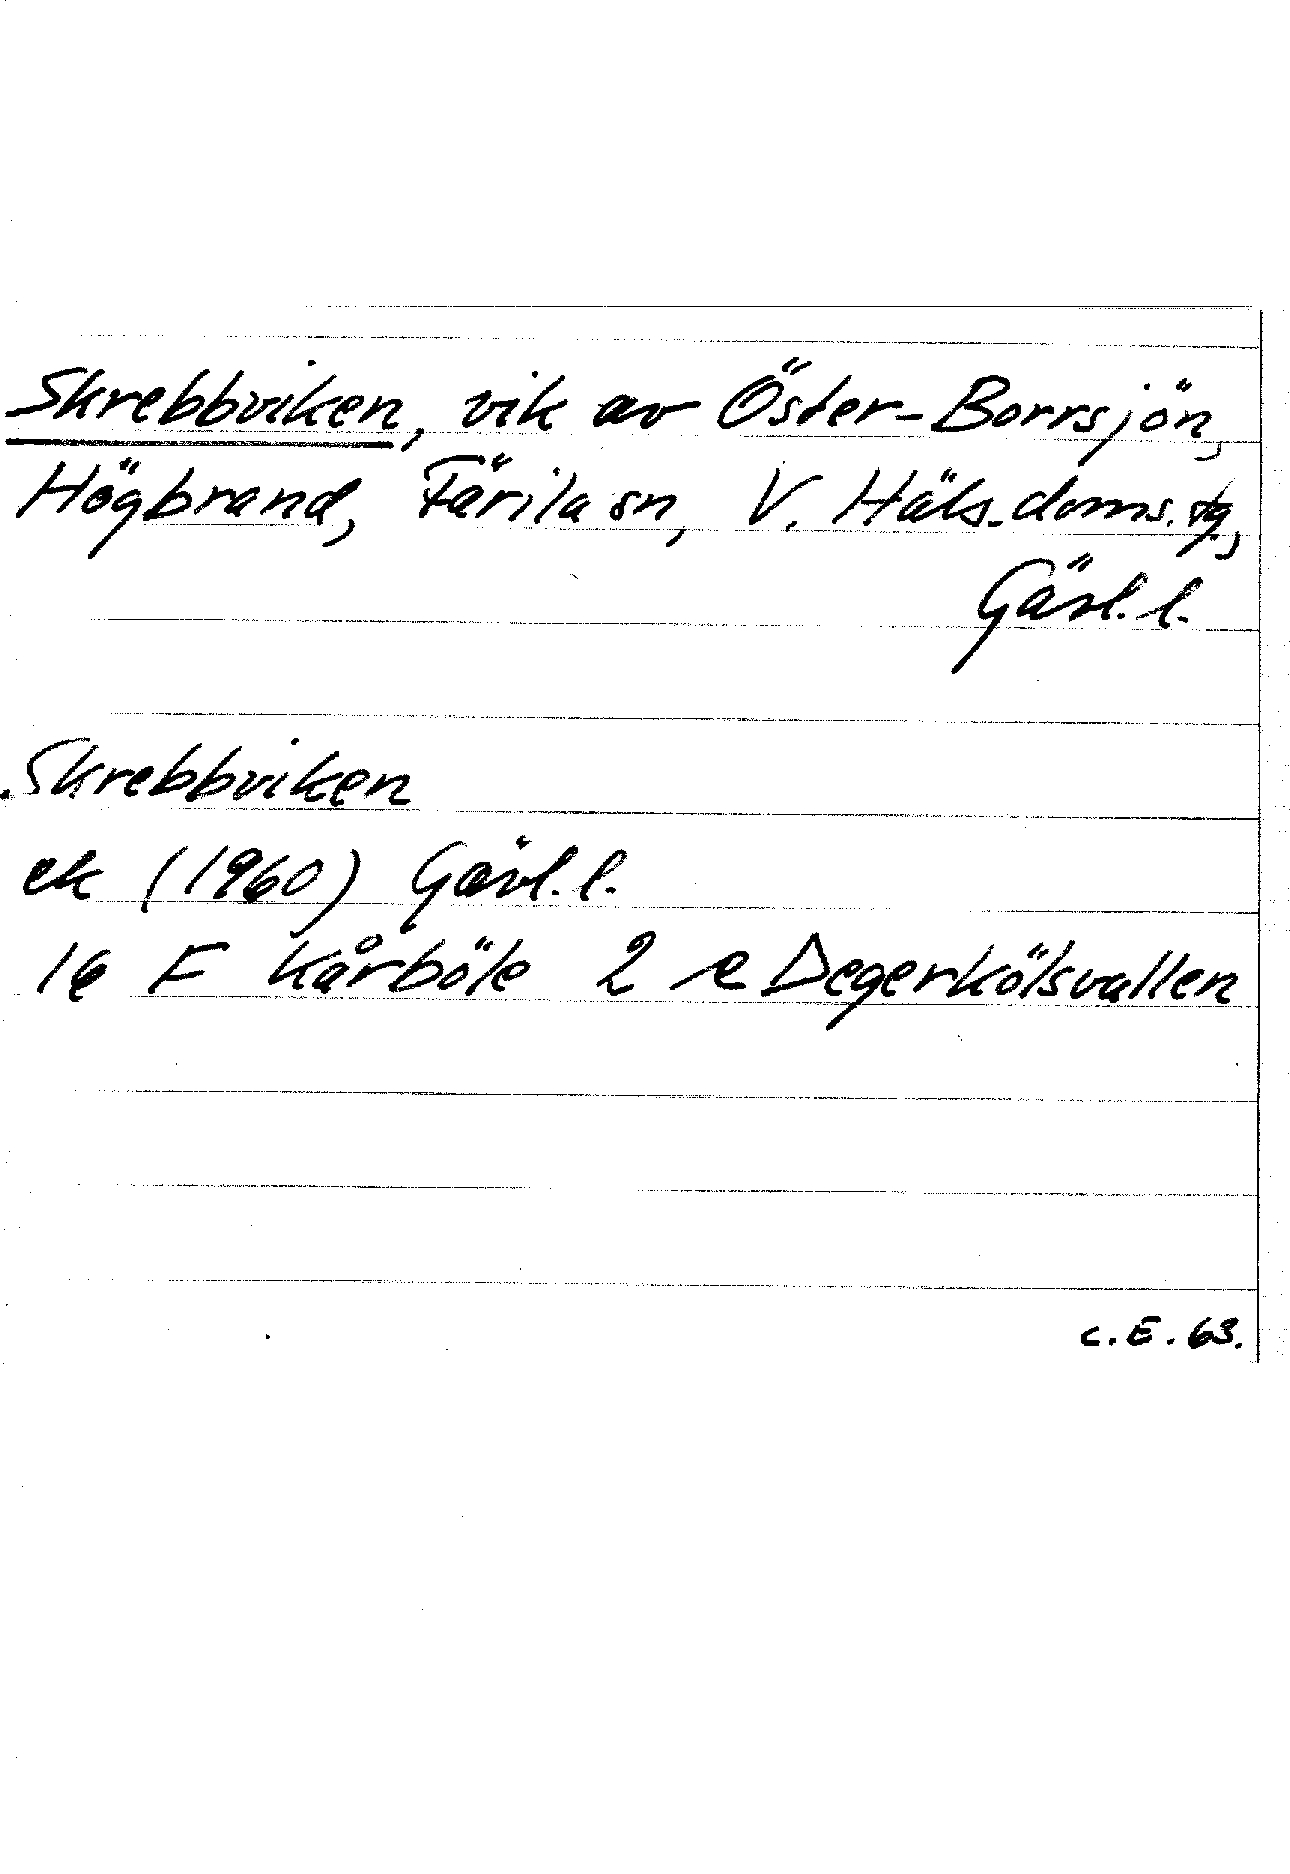 Skrebbviken, vik av Öster-Borrsjön,
Högbrand, Färila sn, V. Häls. doms. tg,
Gävl. l.
Skrebbviken
ek (1960) Gävl. l.
16 F Kårböle 2 e Degerkölsvallen
C. E. 63.